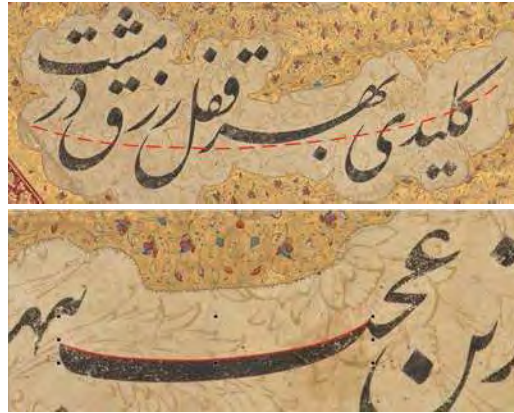 کلیدی بهر قفل رزق در مشت
عجب